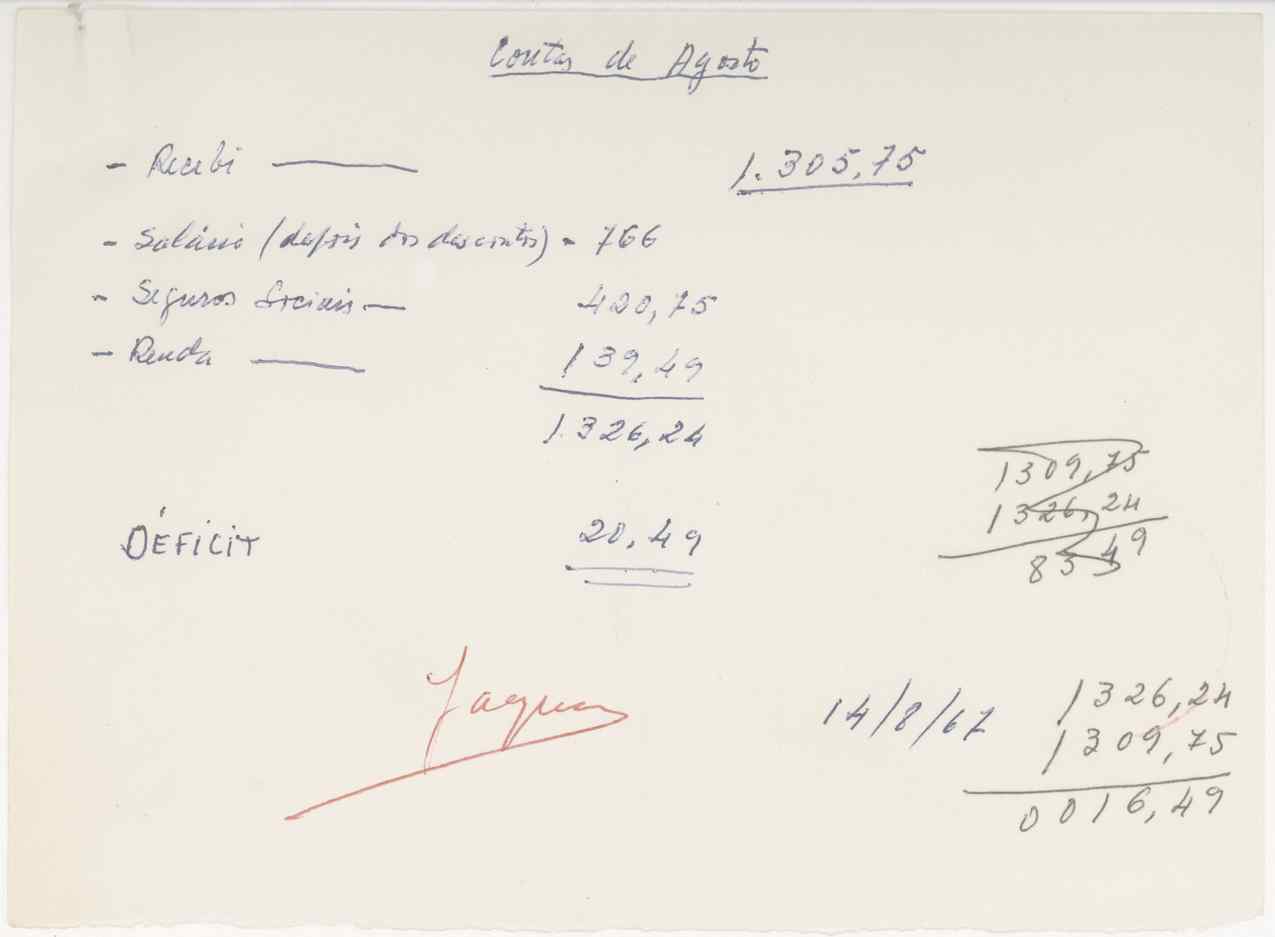 Contas de Agosto
- Recebi — 1.305,75
- Salário (depois dos descontos) - 766
- Seguros Sociais — 420,75
- Renda — 139,49
1.326,24
DÉFICIT 20,49
1309,75
1326,24
8349
14/8/67
1326,24
1309,75
0016,49